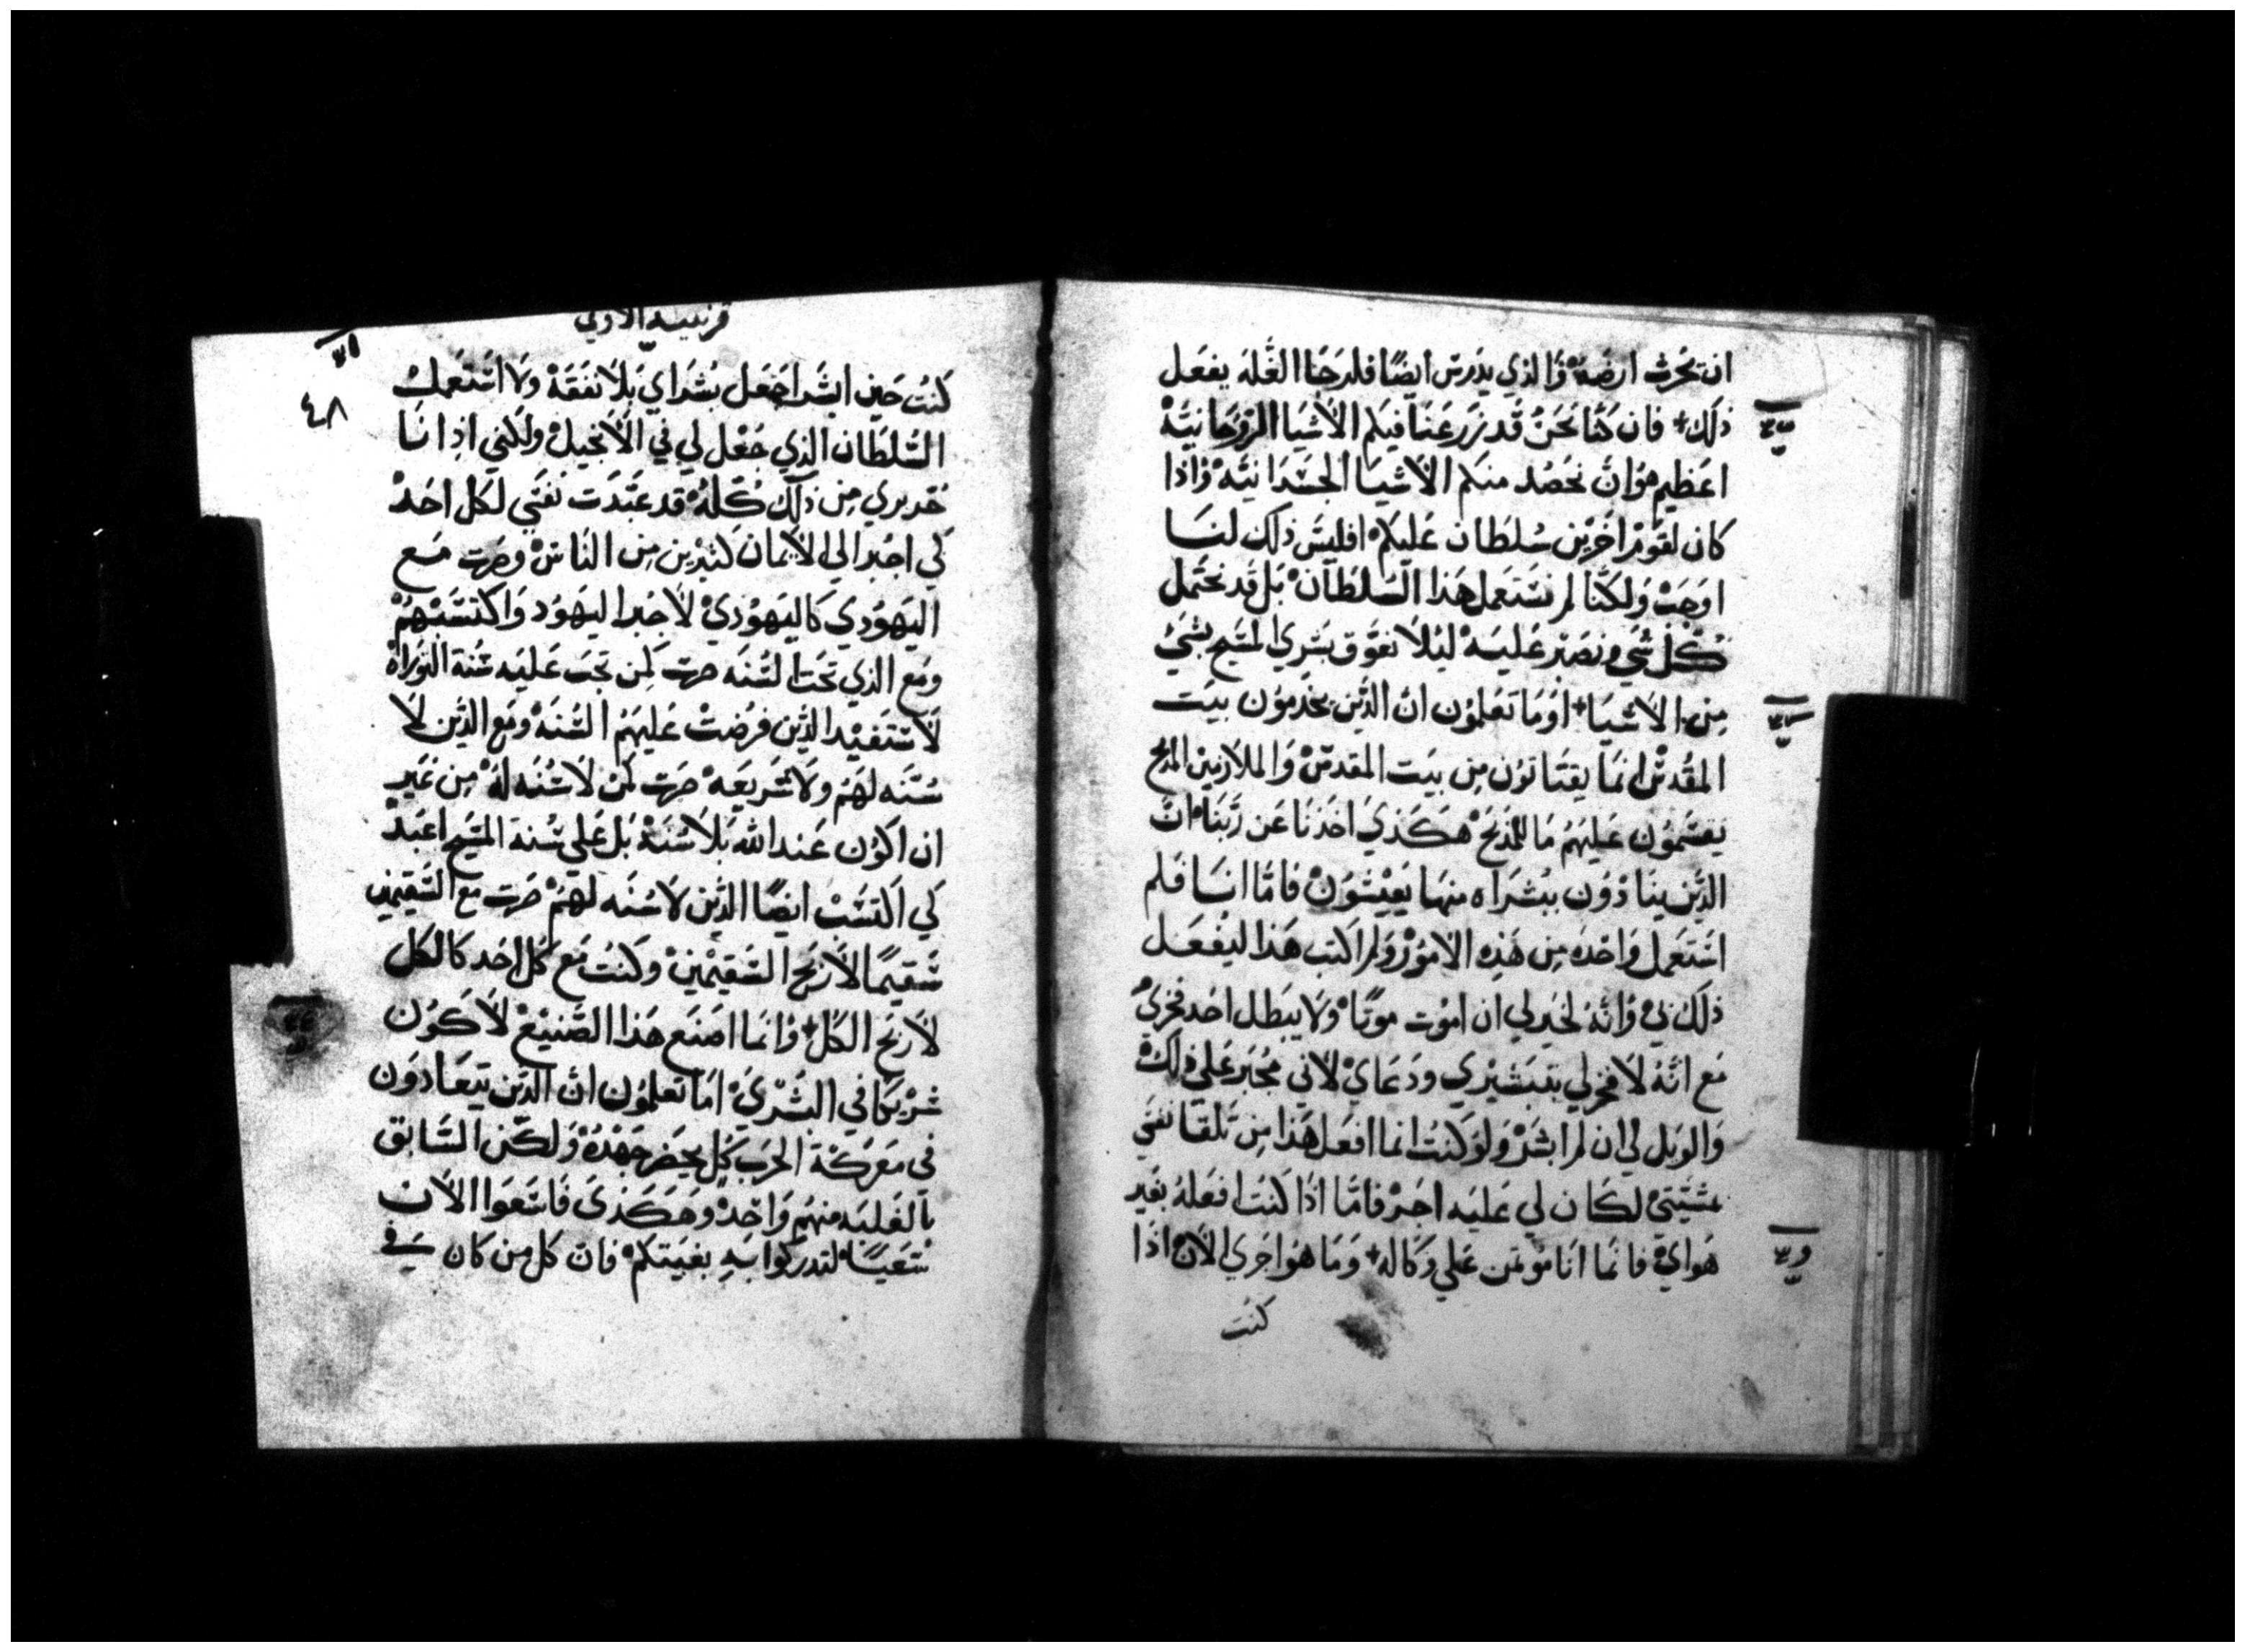 ان تحرث ارضه والذي يدرس ايضا فلرجا الغله يفعل
ذلك فان كنا نحن قد زرعنا فيكم الاشيا الروحانيه
اعظيم هو ان نحصد منكم الاشيا الجسدانيه واذا
كان لقوم اخرين سلطان عليكم افليس ذلك لنا
اوجب ولكنا لم نستعمل هذا السلطان بل قد نحتمل
كل شي ونصبر عليه ليلا نعوق بشري المسيح بشي
من الاشيا اوما تعلمون ان الذين يخدمون بيت
المقدس انما يقتاتون من بيت المقدس والملازمين المدبح
يقسمون عليهم ما للمذبح هكذي اخذنا عن ربنا ان
الذين ينادون ببشراه منها يعيشون فاما انا فلم
استعمل واحده من هذه الامور ولم اكتب هذا ليفعل
ذلك بي وانه لخير لي ان اموت موتا ولا يبطل احد فخري
مع انه لا فخر لي بتبشيري ودعاي لاني مجبر علي ذلك
والويل لي ان لم ابشر ولو كنت انما افعل هذا من تلقا نفسي
بمشيتي لكان لي عليه اجر فاما اذا كنت افعله بغير
هواي فانما انا موتمن علي وكاله وما هو اجري الان اذا
كنت
قرنتيه الاولي
٤٨
كنت حين ابشر اجعل بشراي بلا نفقه ولا استعمل
السلطان الذي جعل لي في الانجيل ولكني اذ انا
حر بري من ذلك كله قد عبدت نفسي لكل احد
لكي اجبر الي الايمان كثيرين من الناس وصرت مع
اليهودي كاليهودي لاجبر اليهود واكتسبهم
ومع الذي تحت السنه صرت كمن تجب عليه سنة التوراه
لاستفيد الذين فرضت عليهم السنه ومع الذين لا
سنه لهم ولا شريعه صرت كمن لا سنه له من غير
ان اكون عند الله بلا سنه بل علي سنة المسيح اعبد
لكي اكتسب ايضا الذين لا سنه لهم صرت مع السقيمين
سقيما لاربح السقيمين وكنت مع كل احد كالكل
لاربح الكل وانما اصنع هذا الصنيع لاكون
شريكا في البشري اما تعلمون ان الذين يتعادون
في معركة الحرب كل يحضر جهده ولكن السابق
بالغلبه منهم واحد وهكذي فاسعوا الان
سعيا لتدركوا به بغيتكم فان كل من كان في